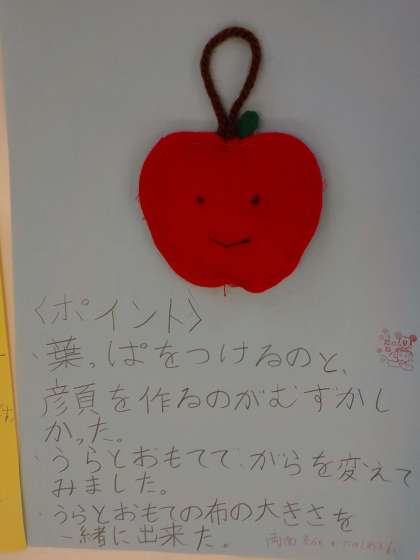 〈ポイント〉
・葉っぱをつけるのと、
顔を作るのがむずかし
かった。
・うらとおもてで、がらを変えて
みました。
・うらとおもての布の大きさを
一緒に出来た。